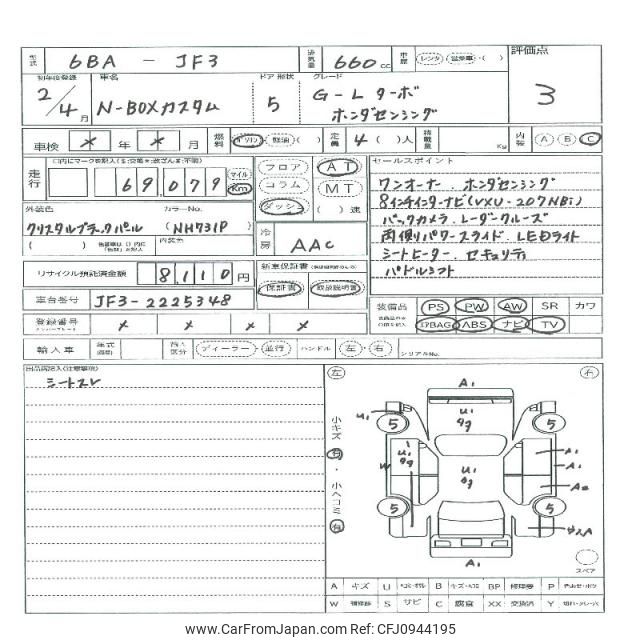 型式 6BA - JF3 排気量 660 cc 車歴 レンタ ・ 営業車 ・( ) 評価点
初年度登録 車名 ドア 形状 グレード
2/4月 N-BOXカスタム 5 G-Lターボ ホンダセンシング 3
車検 × 年 × 月 燃料 ガソリン 軽油 ( ) 定員 4 ( )人 積載量 Kg 内装 A B C
走行 69,079 マイル Km
フロア AT
コラム MT
ダッシュ ( )速
セールスポイント
ワンオーナー. ホンダセンシング
8インチインターナビ(VXU-207NBi)
バックカメラ. レーダークルーズ
両側パワースライド LEDライト
シートヒーター. セキュリティ
パドルシフト
外装色 カラーNo.
クリスタルブラックパール (NH731P)
内装色
冷房 AAC
リサイクル預託済金額 8,110 円
新車保証書
保証書 取扱説明書
車台番号 JF3-2225348
装備品 PS PW AW SR カワ
ABS ナビ TV
登録番号 × × × ×
輸入車 年式 ディーラー ・ 並行 ハンドル 左 ・ 右 シリアルNo.
シートスレ
左 右
小キズ 有 ・ 小ヘコミ 有
A1
U1
U1
5 5
A1
A1
A2
W
U1
U1
5 5
A1
スペア
A キズ U B キズ・ヘコミ BP 修理要 P
W 補修跡 S サビ C 腐食 XX 交換済 Y
www.CarFromJapan.com - RefNo.CFJ0944195